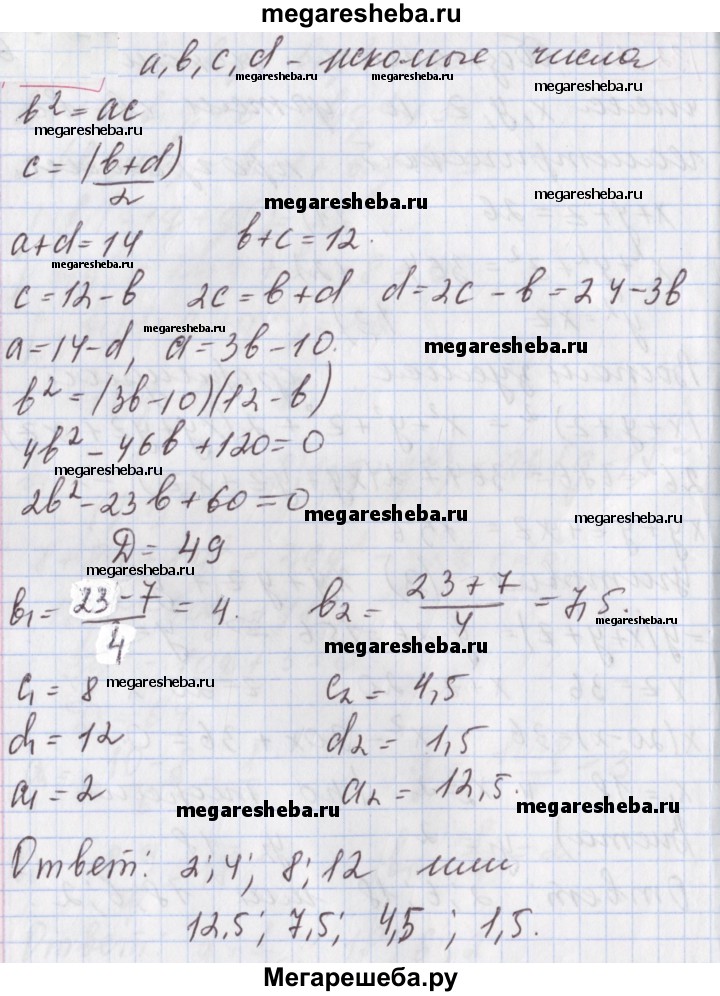 megaresheba.ru
a, b, c, d - искомые числа
megaresheba.ru megaresheba.ru megaresheba.ru
b² = ac
megaresheba.ru
c = (b+d)/2
megaresheba.ru megaresheba.ru
a+d=14 b+c=12.
megaresheba.ru
c=12-b 2c=b+d d=2c-b=24-3b
megaresheba.ru
a=14-d, a=3b-10.
megaresheba.ru
b²=(3b-10)(12-b)
4b²-46b+120=0
megaresheba.ru
2b²-23b+60=0
megaresheba.ru megaresheba.ru
Д=49
megaresheba.ru
b₁=(23-7)/4=4. b₂=(23+7)/4=7,5.
megaresheba.ru
megaresheba.ru
c₁=8 c₂=4,5
megaresheba.ru
d₁=12 d₂=1,5
a₁=2 a₂=12,5.
megaresheba.ru megaresheba.ru
Ответ: 2; 4; 8; 12 или
12,5; 7,5; 4,5; 1,5.
Мегарешеба.ру